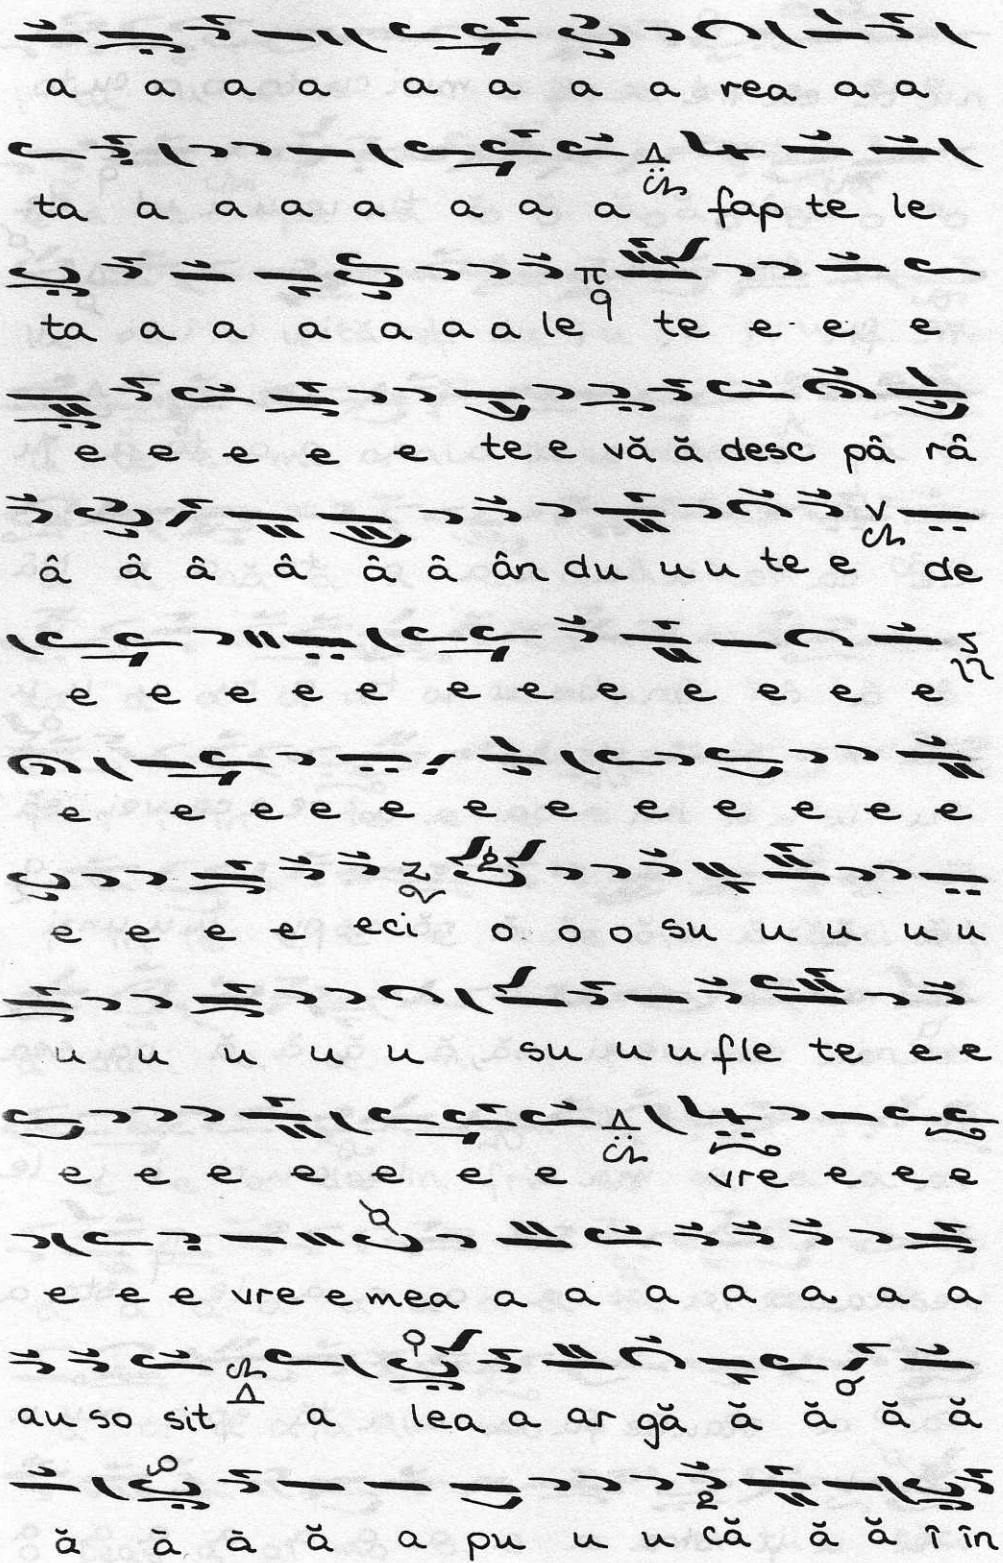 a a a a a a a a rea a a
ta a a a a a a a fap te le
ta a a a a a a le te e e e
e e e e e te e vă ă desc pâ râ
â â â â â â ân du u u te e de
e e e e e e e e e e e e
e e e e e e e e e e e e
e e e e eci o o o su u u u u
u u u u u su u u fle te e e
e e e e e e e vre e e e
e e e vre e mea a a a a a a a
au so sit a lea a ar gă ă ă ă ă
ă ă ă ă a pu u u că ă ă î în